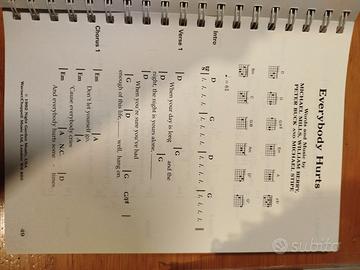 Everybody Hurts
Words and Music by
MICHAEL MILLS, WILLIAM BERRY,
PETER BUCK AND MICHAEL STIPE
Intro
D G D G
Verse 1
D G
When your day is long and the
D G
night, the night is yours alone,
D G
When you're sure you've had
D G
enough of this life, well, hang on
Chorus 1
Em A
Don't let yourself go,
Em A
'Cause everybody cries
Em A N.C. D
And everybody hurts some times.
49
subito